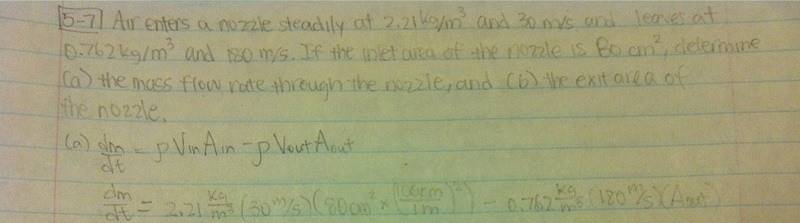 5-7 Air enters a nozzle steadily at 2.21 kg/m³ and 30 m/s and leaves at
0.762 kg/m³ and 180 m/s. If the inlet area of the nozzle is 80 cm², determine
(a) the mass flow rate through the nozzle, and (b) the exit area of
the nozzle.
(a) dm/dt = ρVinAin - ρVoutAout
dm/dt = 2.21 kg/m³ (30 m/s)(80cm² × (100cm/1m)²) - 0.762 kg/m³ (180 m/s)(Aout)